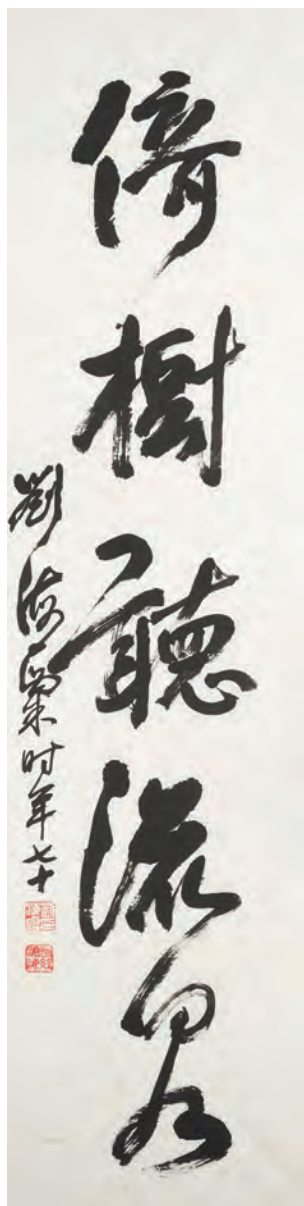 倚樹聽流泉
劉海粟时年七十